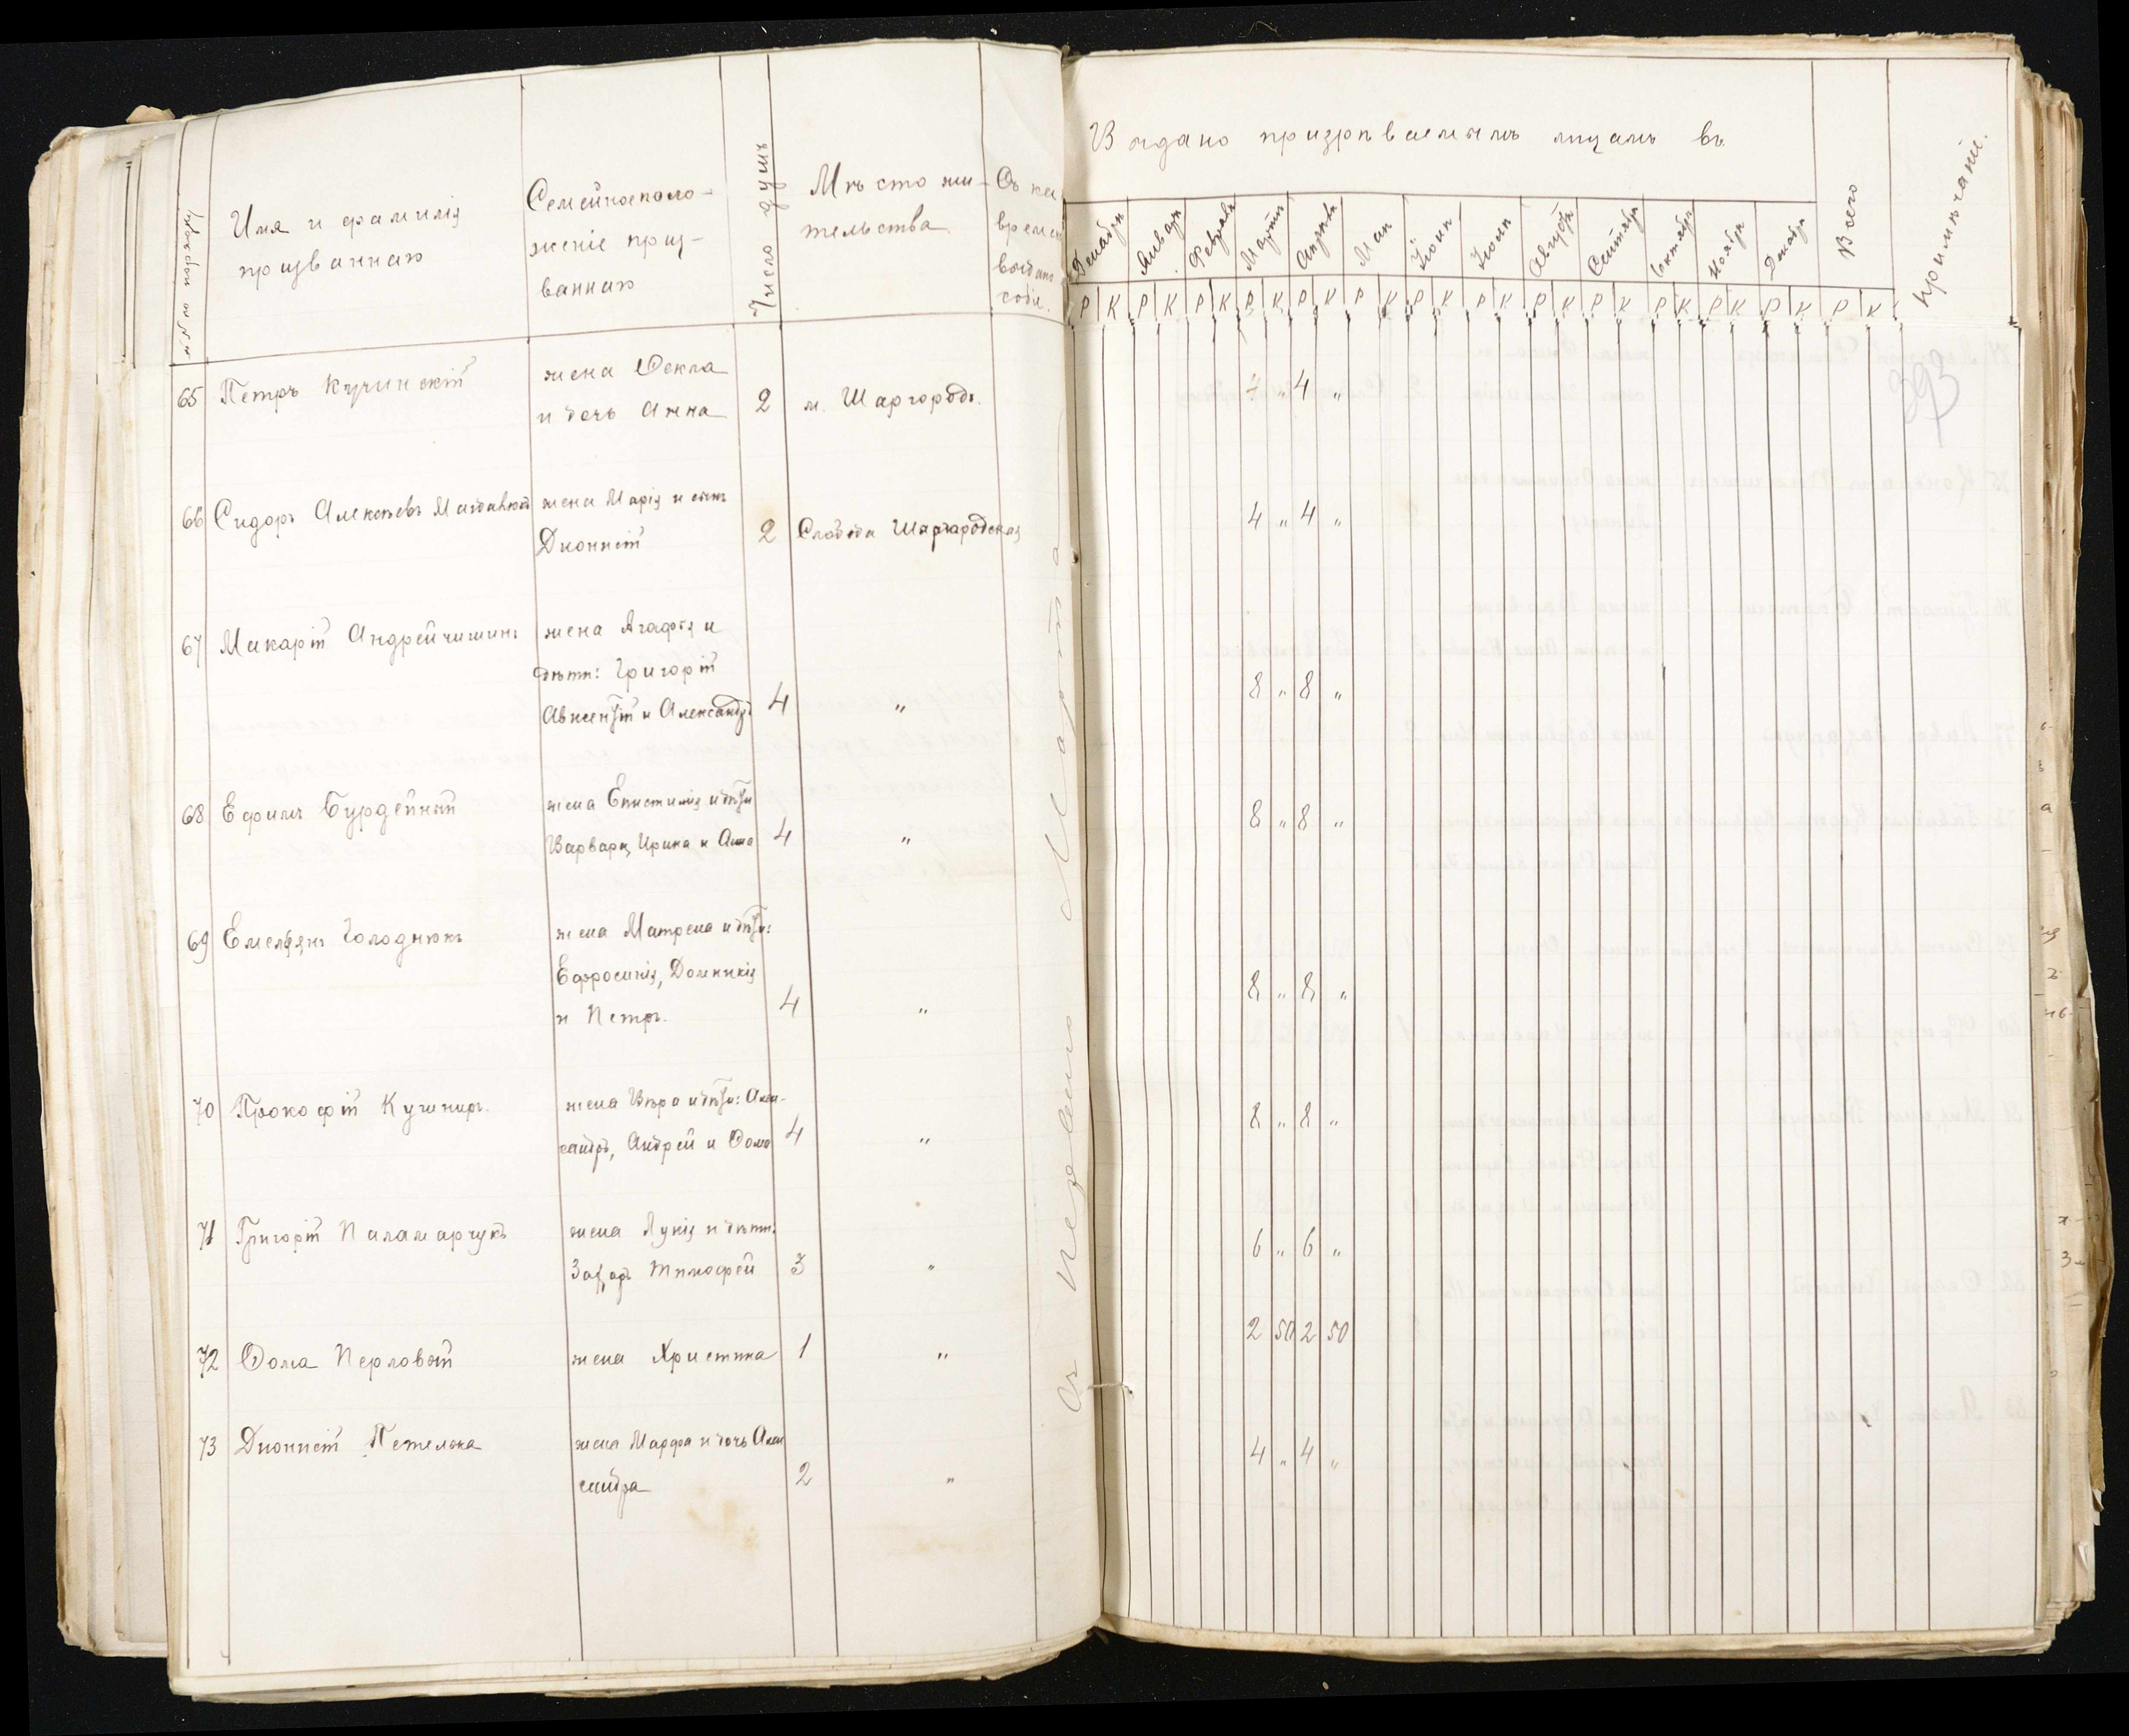 №№ по порядку
Имя и фамилія
призванныхъ
Семейноеполо-
женіе приз-
ванныхъ
Число душъ
Мѣсто жи-
тельства
Съ ка
времен
выдано
собіе.
65 Петръ Кучинскій жена Ѳекла
и дочь Анна 2 м. Шаргородъ.
66 Сидоръ Алексѣевъ жена Марія и сынъ
Діонисій 2 Слобода Шаргородская
67 Макарій Андрейчишинъ жена Агафія и
дѣти: Григорій
Авксентій и Александръ 4 "
68 Ефимъ Бурдейный жена Епистимія и дѣти
Варвара, Ирина и Анна 4 "
69 Емельянъ Голоднюкъ жена Матрена и дѣти:
Евфросинія, Домникія
и Петръ. 4 "
70 Прокофій Кушниръ. жена Вѣра и дѣти: Алек-
сандръ, Андрей и Ѳома 4 "
71 Григорій Паламарчукъ жена Лукія и дѣти:
Захаръ Тимофей 3 "
72 Ѳома Перловый жена Христина 1 "
73 Діонисій Петелька жена Марфа и дочь Алек
сандра 2 "
Съ перваго Марта
Выдано призрѣваемымъ лицамъ въ
Декабрь Январь Февраль Мартъ Апрѣль Май Іюнь Іюль Августъ Сентябрь Октябрь Ноябрь Декабрь Всего Примѣчаніе.
Р К Р К Р К Р К Р К Р К Р К Р К Р К Р К Р К Р К Р К Р К
393
4 " 4 "
4 " 4 "
8 " 8 "
8 " 8 "
8 " 8 "
8 " 8 "
6 " 6 "
2 50 2 50
4 " 4 "